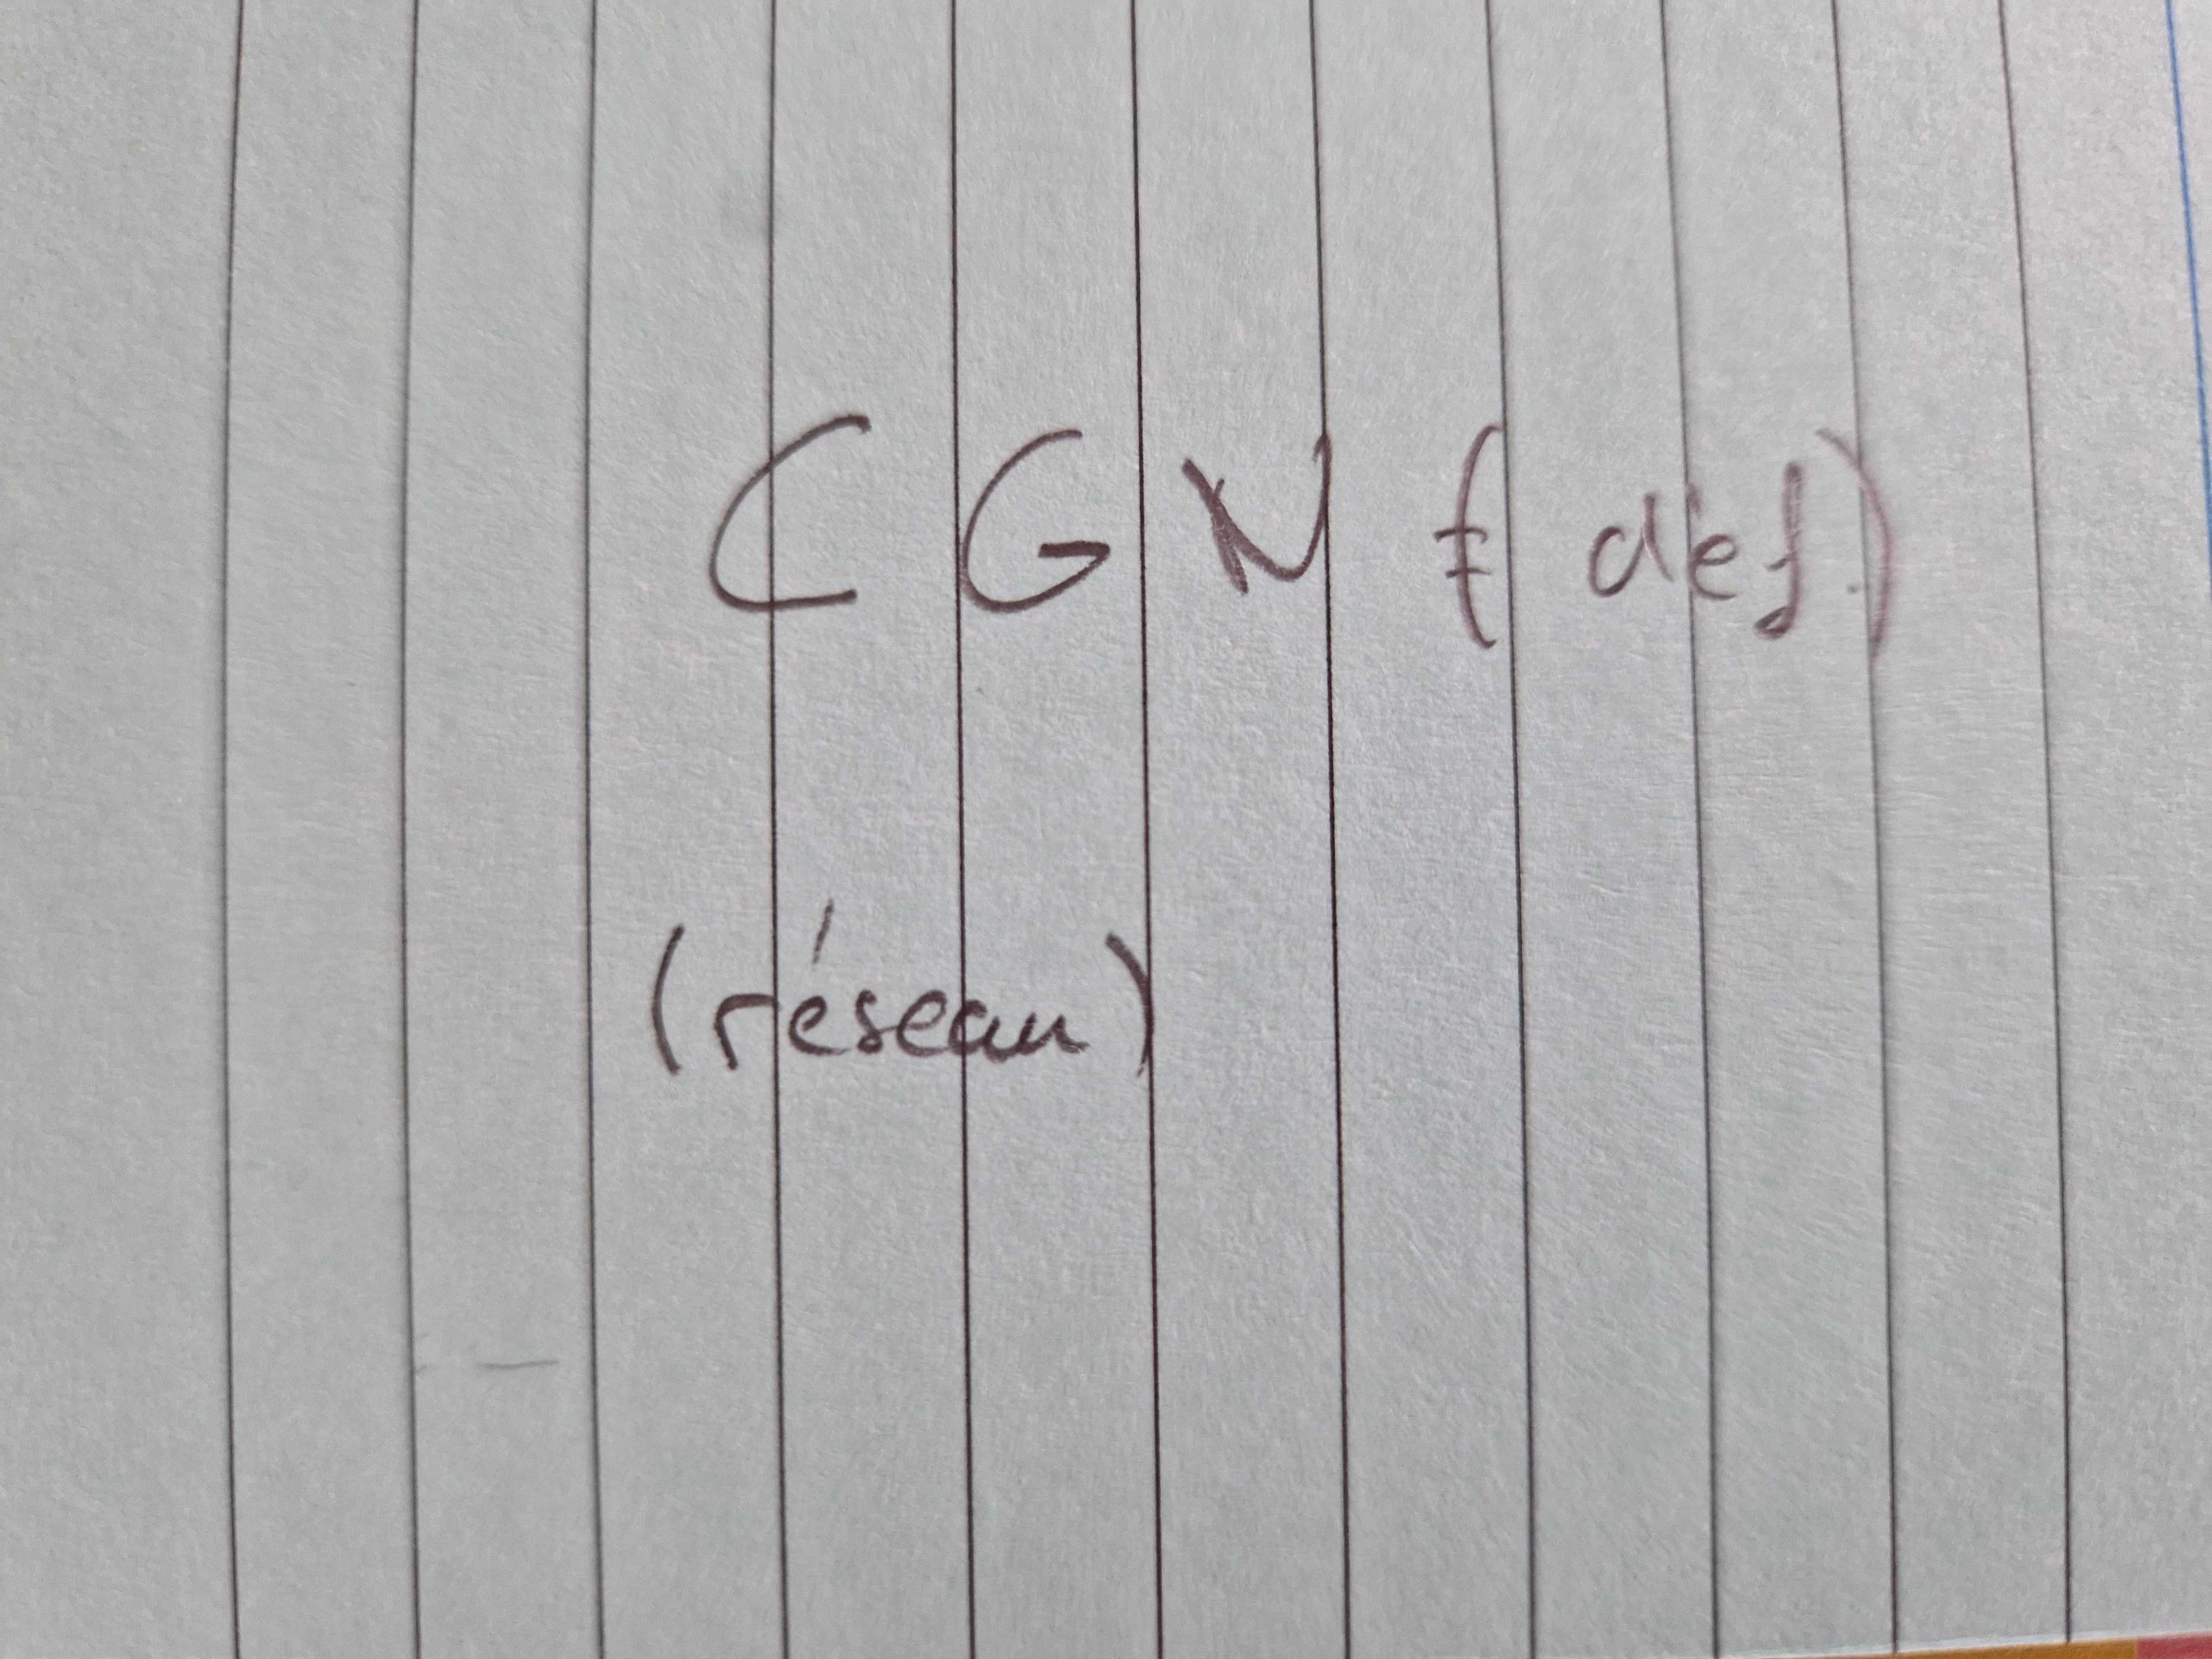 CGN (déf.)
(réseau)